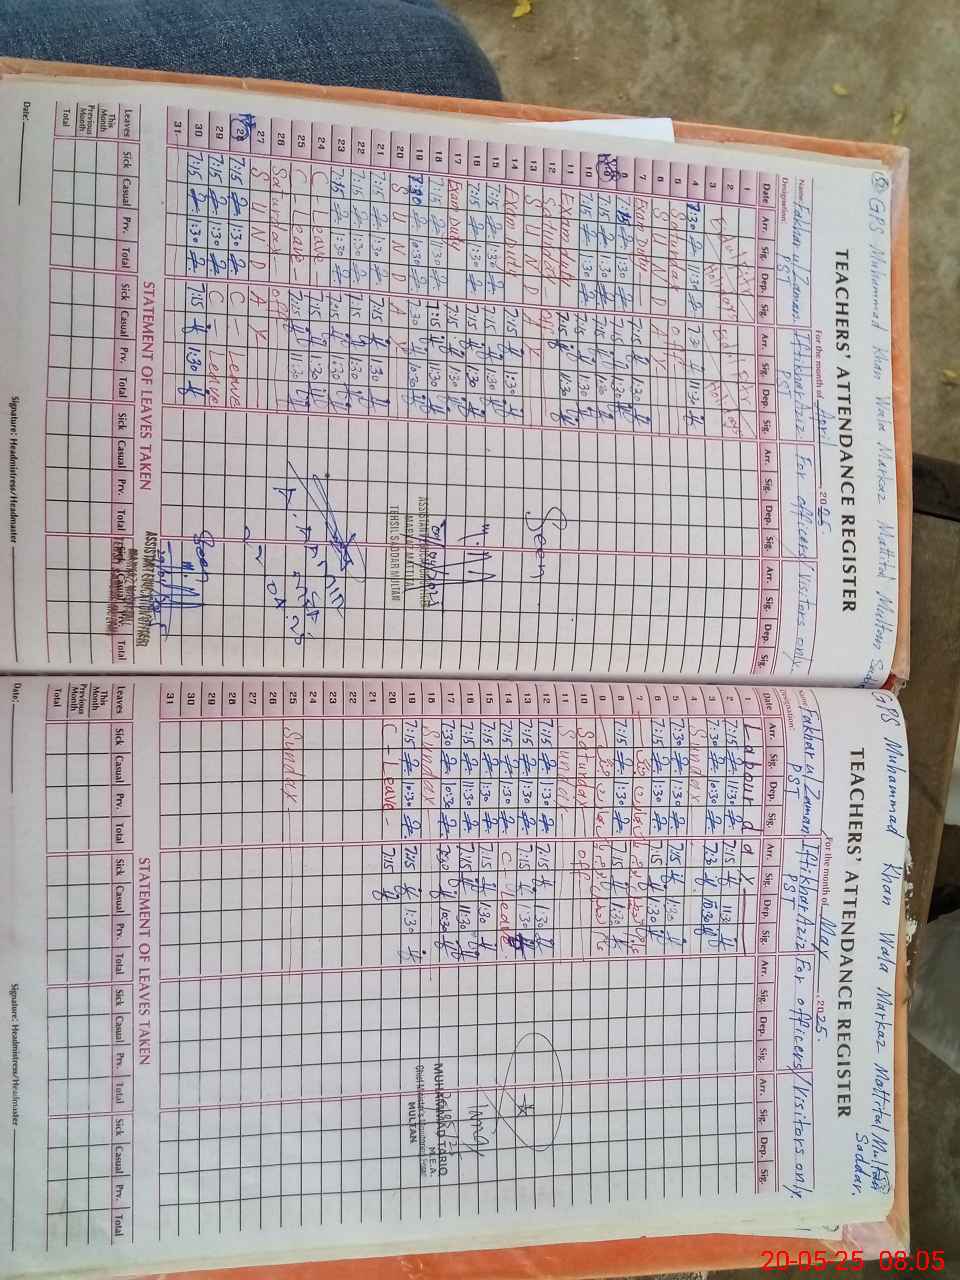 GPS Muhammad Khan Wala Markaz Mattital Multan Saddar
TEACHERS' ATTENDANCE REGISTER
For the month of April, 2025.
Name: Fakhar ul Zaman Iftikhar Aziz For officers/Visitors only.
Designation: PST PST
Date Arr. Sig. Dep. Sig. Arr. Sig. Dep. Sig. Arr. Sig. Dep. Sig. Arr. Sig. Dep. Sig.
1
2
3
4 7:30 11:30 7:30 11:30
5 Saturday off
6 S U N D A Y
7 Exam Duty 7:15 1:30
8 7:15 1:30 7:15 1:30
9 7:15 1:30 7:15 1:30
10 7:15 1:30 7:15 1:30
11 Exam duty 7:15 11:30
12 Saturday off
13 S U N D A Y
14 Exam Duty 7:15 1:30
15 7:15 1:30 7:15 1:30
16 7:15 1:30 7:15 1:30
17 Exam Duty 7:15 1:30
18 7:15 11:30 7:15 11:30
19 7:30 10:30 7:30 10:30
20 S U N D A Y
21 7:15 1:30 7:15 1:30
22 7:15 1:30 7:15 1:30
23 7:15 1:30 7:15 1:30
24 C - Leave - 7:15 1:30
25 C - Leave - 7:15 11:30
26 Saturday off
27 S U N D A Y
28 7:15 1:30 C - Leave
29 7:15 1:30 C - Leave
30 7:15 1:30 7:15 1:30
31
Seen
ASSISTANT EDUCATION OFFICER
MARKAZ MATTITAL
TEHSIL SADDAR MULTAN
Seen
ASSISTANT EDUCATION OFFICER
STATEMENT OF LEAVES TAKEN
Leaves Sick Casual Prv. Total Sick Casual Prv. Total Sick Casual Prv. Total Sick Casual Prv. Total
This Month
Previous Month
Total
Date: Signature: Headmistress/Headmaster
GPS Muhammad Khan Wala Markaz Mattital Multan Saddar.
TEACHERS' ATTENDANCE REGISTER
For the month of May, 2025.
Name: Fakhar ul Zaman Iftikhar Aziz For officers/Visitors only.
Designation: PST PST
Date Arr. Sig. Dep. Sig. Arr. Sig. Dep. Sig. Arr. Sig. Dep. Sig. Arr. Sig. Dep. Sig.
1 Labour day
2 7:15 11:30 7:15 11:30
3 7:30 10:30 7:30 10:30
4 Sunday
5 7:30 1:30 7:15 1:30
6 7:15 1:30 7:15 1:30
7
8 7:15 1:30 7:15 1:30
9
10 Saturday off
11 Sunday
12 7:15 1:30 7:15 1:30
13 7:15 1:30 7:15 1:30
14 7:15 1:30 C - Leave
15 7:15 1:30 7:15 1:30
16 7:15 11:30 7:15 11:30
17 7:30 10:30 7:30 10:30
18 Sunday
19 7:15 10:30 7:15 1:30
20 C - Leave - 7:15
21
22
23
24
25 Sunday
26
27
28
29
30
31
MUHAMMAD TARIQ
M.E.A.
MULTAN
STATEMENT OF LEAVES TAKEN
Leaves Sick Casual Prv. Total Sick Casual Prv. Total Sick Casual Prv. Total Sick Casual Prv. Total
This Month
Previous Month
Total
Date: Signature: Headmistress/Headmaster
20-05-25 08:05